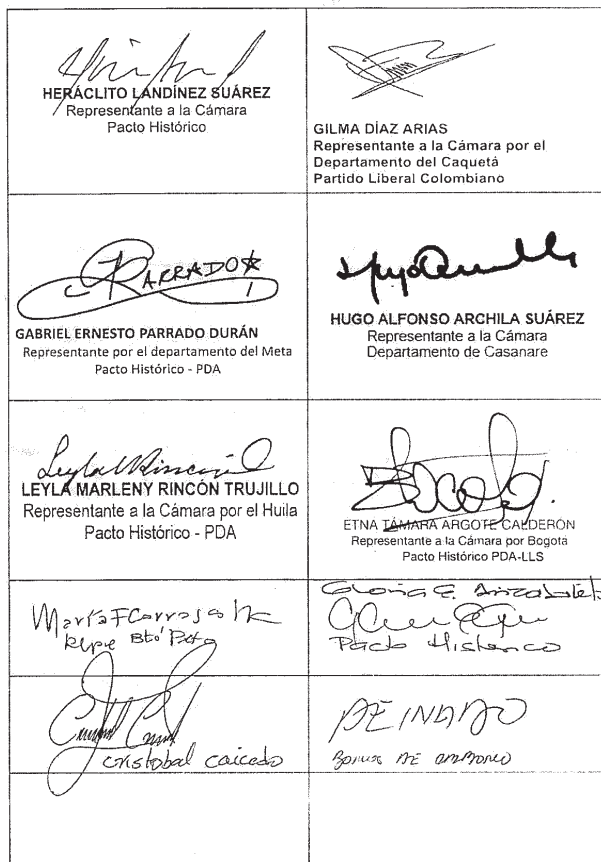 HERÁCLITO LANDÍNEZ SUÁREZ
Representante a la Cámara
Pacto Histórico
GILMA DÍAZ ARIAS
Representante a la Cámara por el
Departamento del Caquetá
Partido Liberal Colombiano
PARRADO
GABRIEL ERNESTO PARRADO DURÁN
Representante por el departamento del Meta
Pacto Histórico - PDA
HUGO ALFONSO ARCHILA SUÁREZ
Representante a la Cámara
Departamento de Casanare
Leyla Rincón
LEYLA MARLENY RINCÓN TRUJILLO
Representante a la Cámara por el Huila
Pacto Histórico - PDA
ETNA TÁMARA ARGOTE CALDERÓN
Representante a la Cámara por Bogotá
Pacto Histórico PDA-LLS
Gloria E. Arizabaleta
Pacto Historico
cristobal caicedo